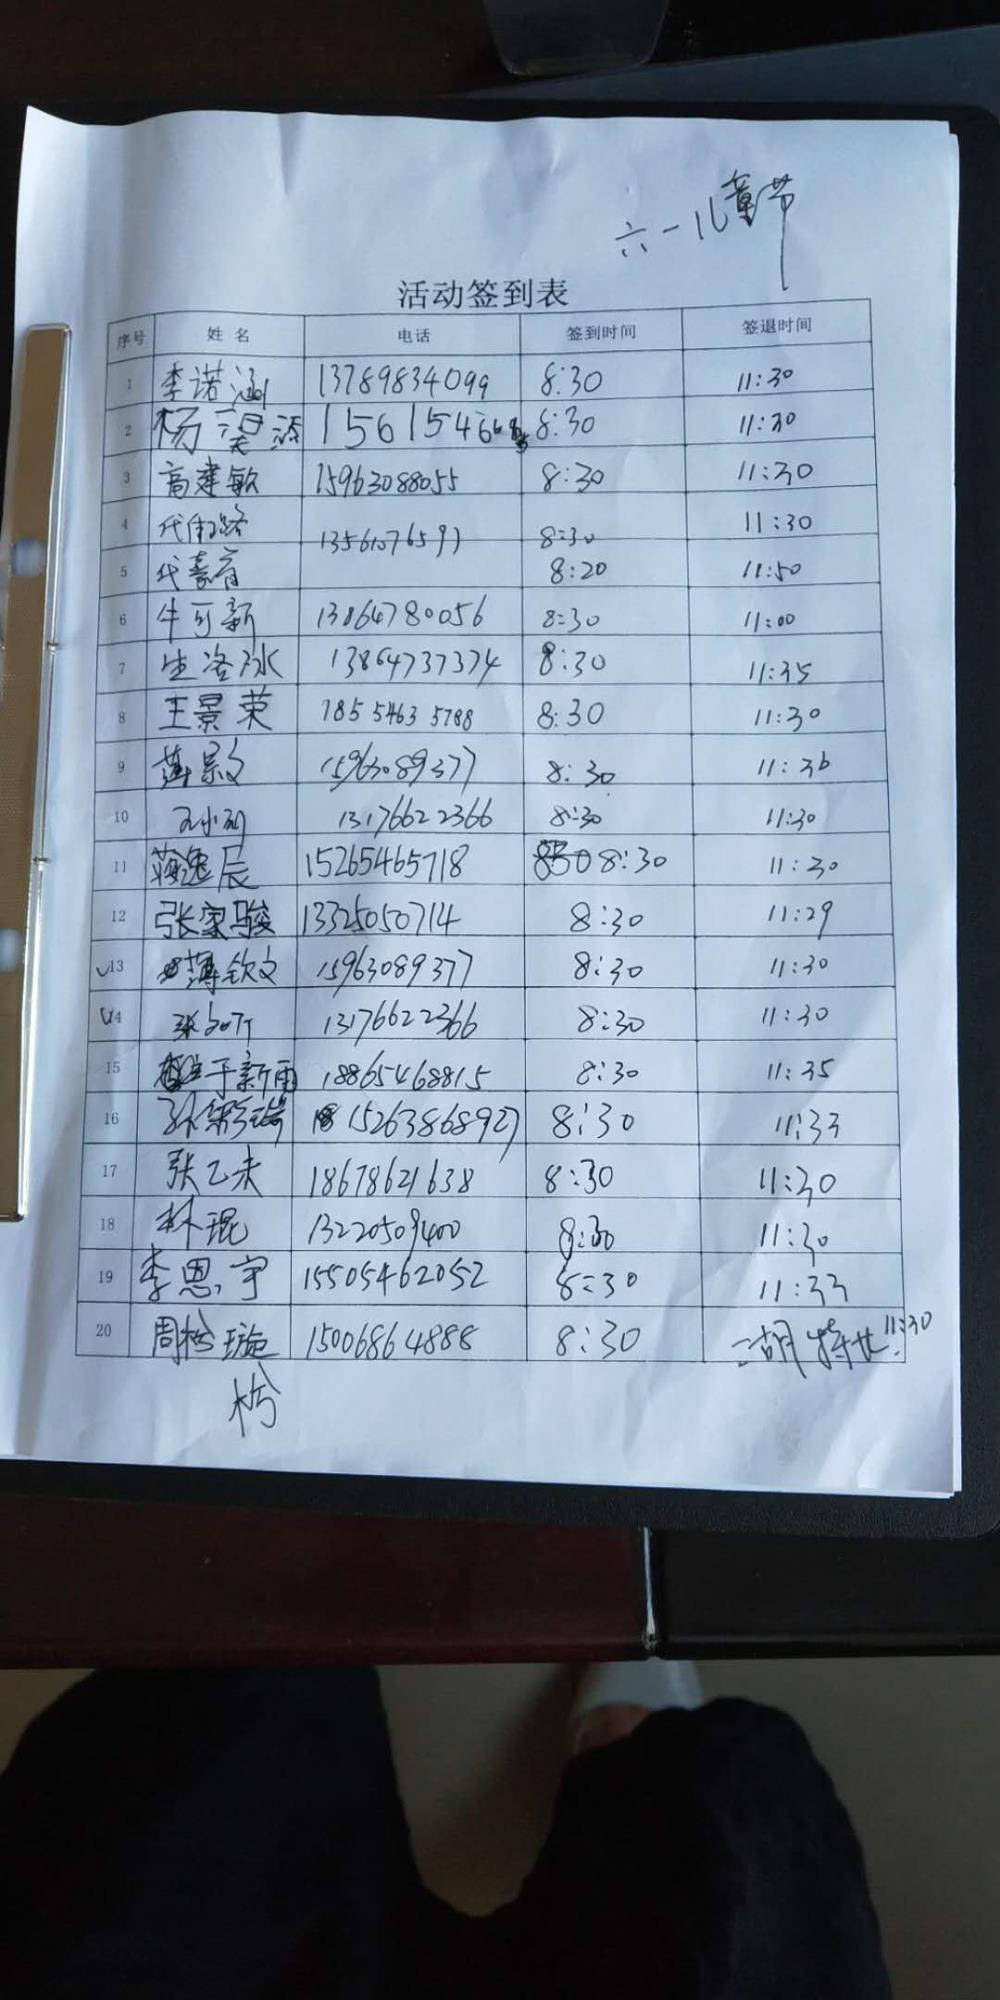 六一儿童节
活动签到表
序号 姓名 电话 签到时间 签退时间
1 李诺涵 13789834099 8:30 11:30
2 杨 1561546 8:30 11:30
3 高建敏 15963088055 8:30 11:30
4 8:30 11:30
5 代嘉育 8:20 11:50
6 牛可新 13864780056 8:30 11:00
7 生洛冰 13864737374 8:30 11:35
8 王景荣 185 5463 5788 8:30 11:30
9 15963089377 8:30 11:30
10 13176622366 8:30 11:30
11 蒋逸辰 15265465718 8:30 11:30
12 张家骏 13325050714 8:30 11:29
13 薄钦文 15963089377 8:30 11:30
14 13176622366 8:30 11:30
15 于新雨 18865468815 8:30 11:35
16 15263868927 8:30 11:33
17 张乙未 18678621638 8:30 11:30
18 林琨 13220509400 8:30 11:30
19 李恩宇 15505462052 8:30 11:33
20 周枍璇 15006864888 8:30 11:30